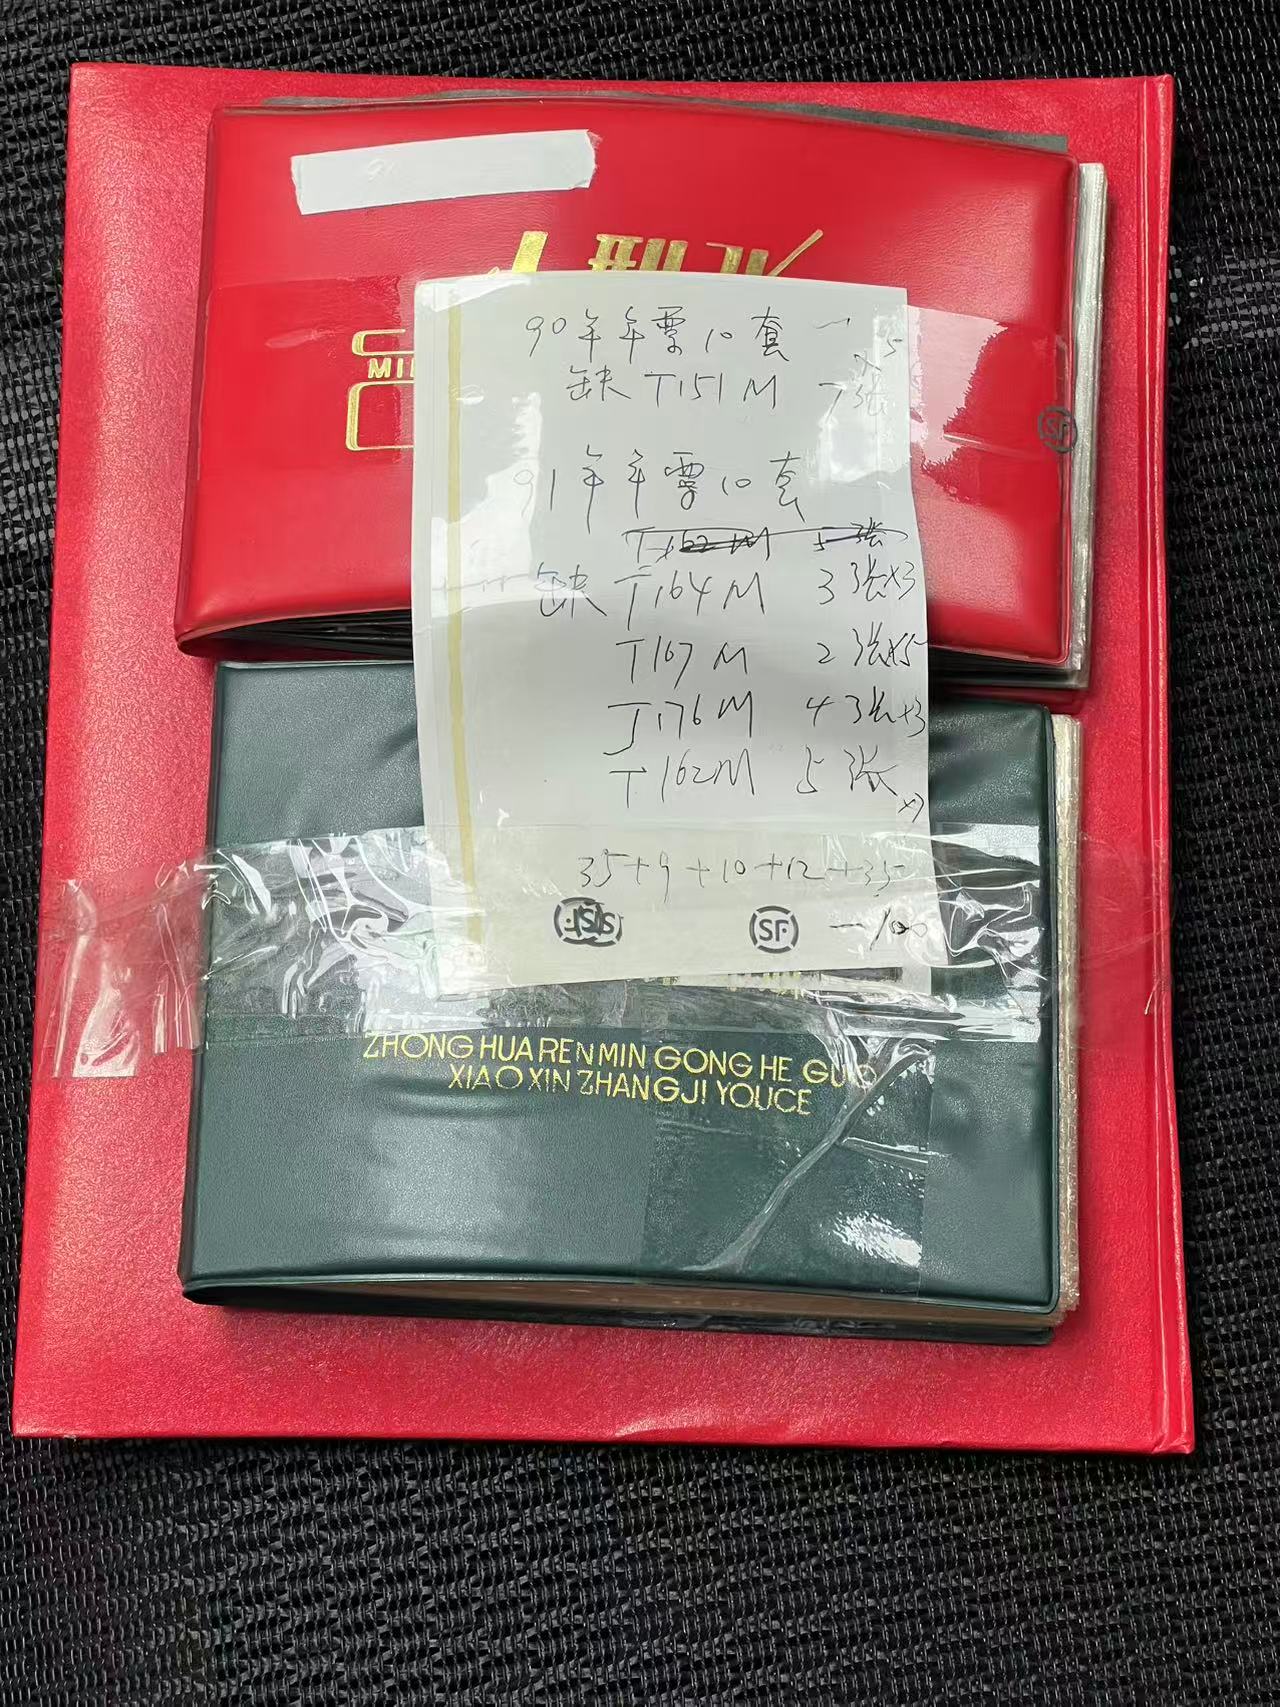 型张
MIN
90年年票10套
x5
缺 T151M 7张
91年年票10套
T162M 5张
缺 T164M 3张x3
T167M 2张x5
J176M 4张x3
T162M 5张
x7
35+9+10+12+35
SF
SF
SF
ZHONG HUA REN MIN GONG HE GUO
XIAO XIN ZHANG JI YOUCE